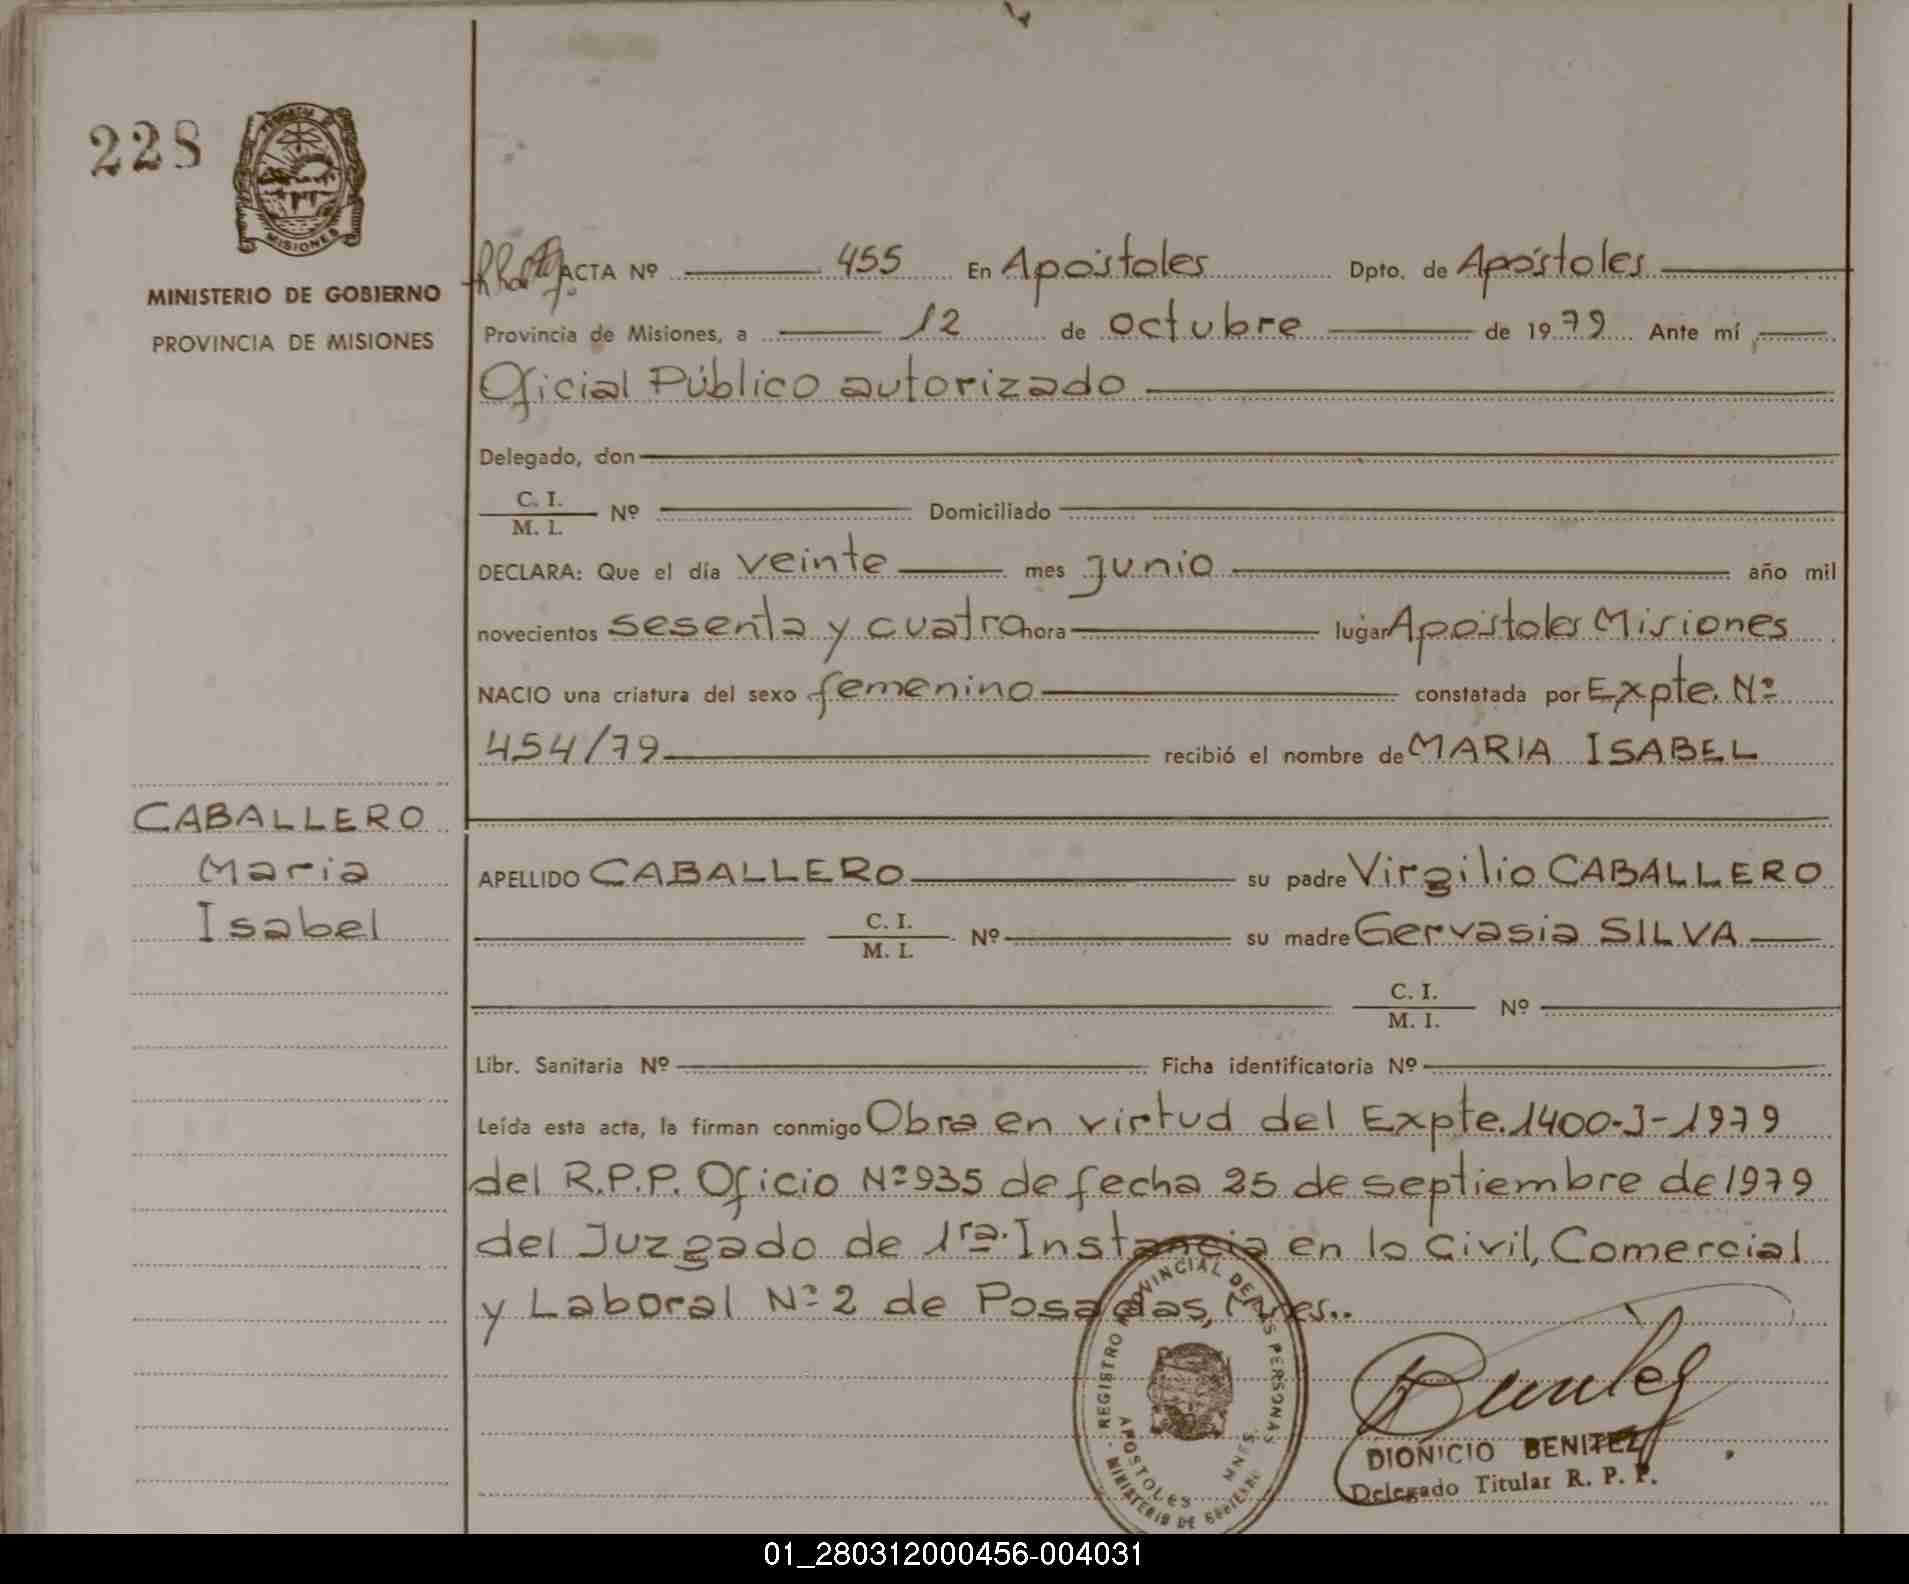 228
MISIONES
MINISTERIO DE GOBIERNO
PROVINCIA DE MISIONES
ACTA Nº 455 En Apóstoles Dpto. de Apóstoles
Provincia de Misiones, a 12 de octubre de 1979 Ante mí
Oficial Público autorizado
Delegado, don
C. I.
M. I. Nº Domiciliado
DECLARA: Que el día veinte mes junio año mil
novecientos sesenta y cuatro hora lugar Apóstoles Misiones
NACIO una criatura del sexo femenino constatada por Expte. Nº
454/79 recibió el nombre de MARIA ISABEL
CABALLERO
Maria
Isabel
APELLIDO CABALLERO su padre Virgilio CABALLERO
C. I.
M. I. Nº su madre Gervasia SILVA
C. I.
M. I. Nº
Libr. Sanitaria Nº Ficha identificatoria Nº
Leída esta acta, la firman conmigo Obra en virtud del Expte. 1400-J-1979
del R.P.P. Oficio Nº 935 de fecha 25 de septiembre de 1979
del Juzgado de 1ra. Instancia en lo Civil, Comercial
y Laboral Nº 2 de Posadas, Mnes..
REGISTRO PROVINCIAL DE LAS PERSONAS
APOSTOLES MNES.
MINISTERIO DE GOBIERNO
DIONICIO BENITEZ
Delegado Titular R. P. P.
01_280312000456-004031